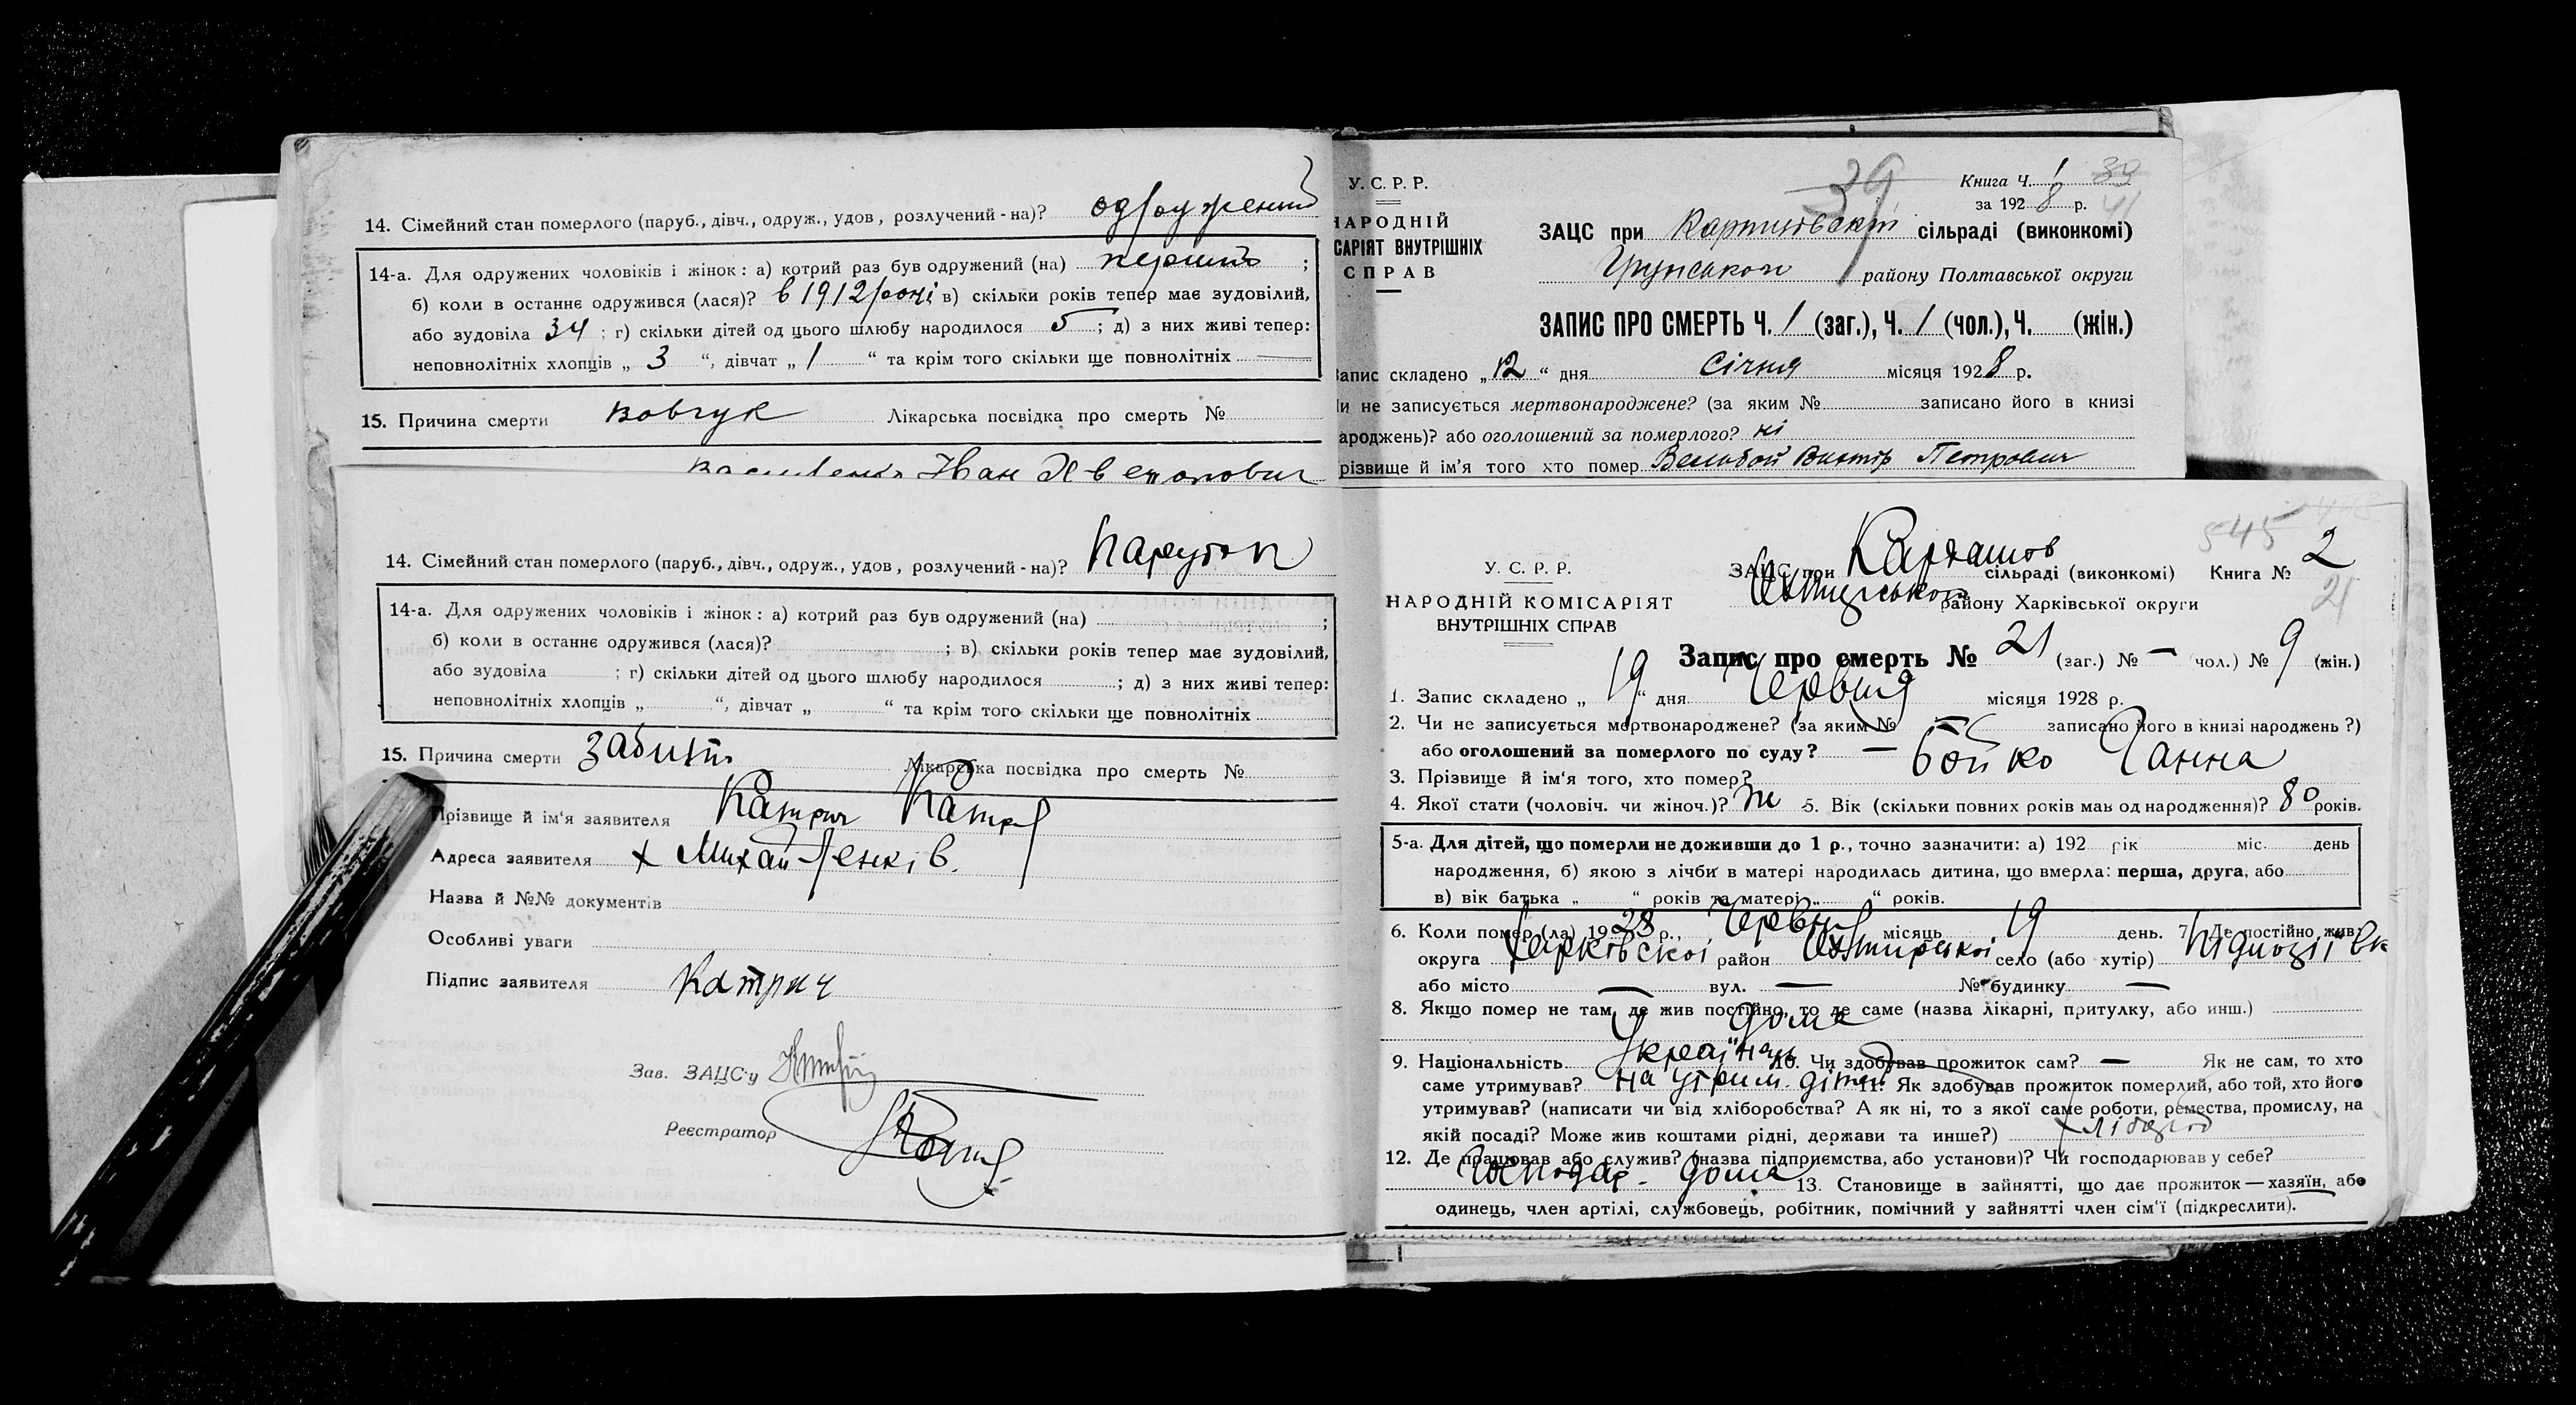 14. Сімейний стан померлого (паруб., дівч., одруж., удов, розлучений-на)? одружений
14-а. Для одружених чоловіків і жінок: а) котрий раз був одружений (на) перший;
б) коли в останнє одружився (лася)? в 1912 році в) скільки років тепер має зудовілий,
або зудовіла 34; г) скільки дітей од цього шлюбу народилося 5; д) з них живі тепер:
неповнолітніх хлопців „ 3 “, дівчат „ 1 “ та крім того скільки ще повнолітніх —
15. Причина смерти вовчук Лікарська посвідка про смерть №
Іван
14. Сімейний стан померлого (паруб., дівч., одруж., удов, розлучений-на)? Парубок
14-а. Для одружених чоловіків і жінок: а) котрий раз був одружений (на) ;
б) коли в останнє одружився (лася)? ; в) скільки років тепер має зудовілий,
або зудовіла ; г) скільки дітей од цього шлюбу народилося ; д) з них живі тепер:
неповнолітніх хлопців „ “, дівчат „ “ та крім того скільки ще повнолітніх
15. Причина смерти забитт Лікарська посвідка про смерть №
Прізвище й ім'я заявителя Катрич
Адреса заявителя х Михайленків.
Назва й №№ документів
Особливі уваги
Підпис заявителя Катрич
Зав. ЗАЦС'у
Реєстратор
У. С. Р. Р.
НАРОДНІЙ
САРІЯТ ВНУТРІШНІХ
СПРАВ
39
Книга Ч. 1
за 192 8 р.
41
ЗАЦС при сільраді (виконкомі)
Грунському району Полтавської округи
ЗАПИС ПРО СМЕРТЬ Ч. 1 (заг.), Ч. 1 (чол.), Ч. (жін.)
Запис складено „ 12 “ дня Січня місяця 192 8 р.
и не записується мертвонароджене? (за яким № записано його в книзі
ароджень)? або оголошений за померлого? ні
різвище й ім'я того хто помер Петрович
У. С. Р. Р.
НАРОДНІЙ КОМІСАРІЯТ
ВНУТРІШНІХ СПРАВ
545
ЗАЦС при Карташов сільраді (виконкомі) Книга № 2
Охтирськом району Харківської округи
21
Запис про смерть № 21 (заг.) № — чол.) № 9 (жін.)
1. Запис складено „ 19 “ дня Червня місяця 1928 р.
2. Чи не записується мертвонароджене? (за яким № — записано його в книзі народжень?)
або оголошений за померлого по суду? —
3. Прізвище й ім'я того, хто помер? Бойко Ганна
4. Якої стати (чоловіч. чи жіноч.)? Ж 5. Вік (скільки повних років мав од народження)? 80 років.
5-а. Для дітей, що померли не доживши до 1 р., точно зазначити: а) 192 рік міс. день
народження, б) якою з лічби в матері народилась дитина, що вмерла: перша, друга, або
в) вік батька „ “ років та матері „ “ років.
6. Коли помер (ла) 1928 р., Червня місяць 19 день. 7. Де постійно жив:
округа Харківської район Охтирської село (або хутір)
або місто — вул. — № будинку —
8. Якщо помер не там, де жив постійно, то де саме (назва лікарні, притулку, або инш.)
дома
9. Національність Українка 10. Чи здобував прожиток сам? — Як не сам, то хто
саме утримував? на утрим. дітей 11. Як здобував прожиток померлий, або той, хто його
утримував? (написати чи від хліборобства? А як ні, то з якої саме роботи, ремества, промислу, на
якій посаді? Може жив коштами рідні, держави та инше?) хлібороб
12. Де працював або служив? (назва підприємства, або установи)? Чи господарював у себе?
господар. дома 13. Становище в зайнятті, що дає прожиток—хазяїн, або
одинець, член артілі, службовець, робітник, помічний у зайнятті член сім'ї (підкреслити).